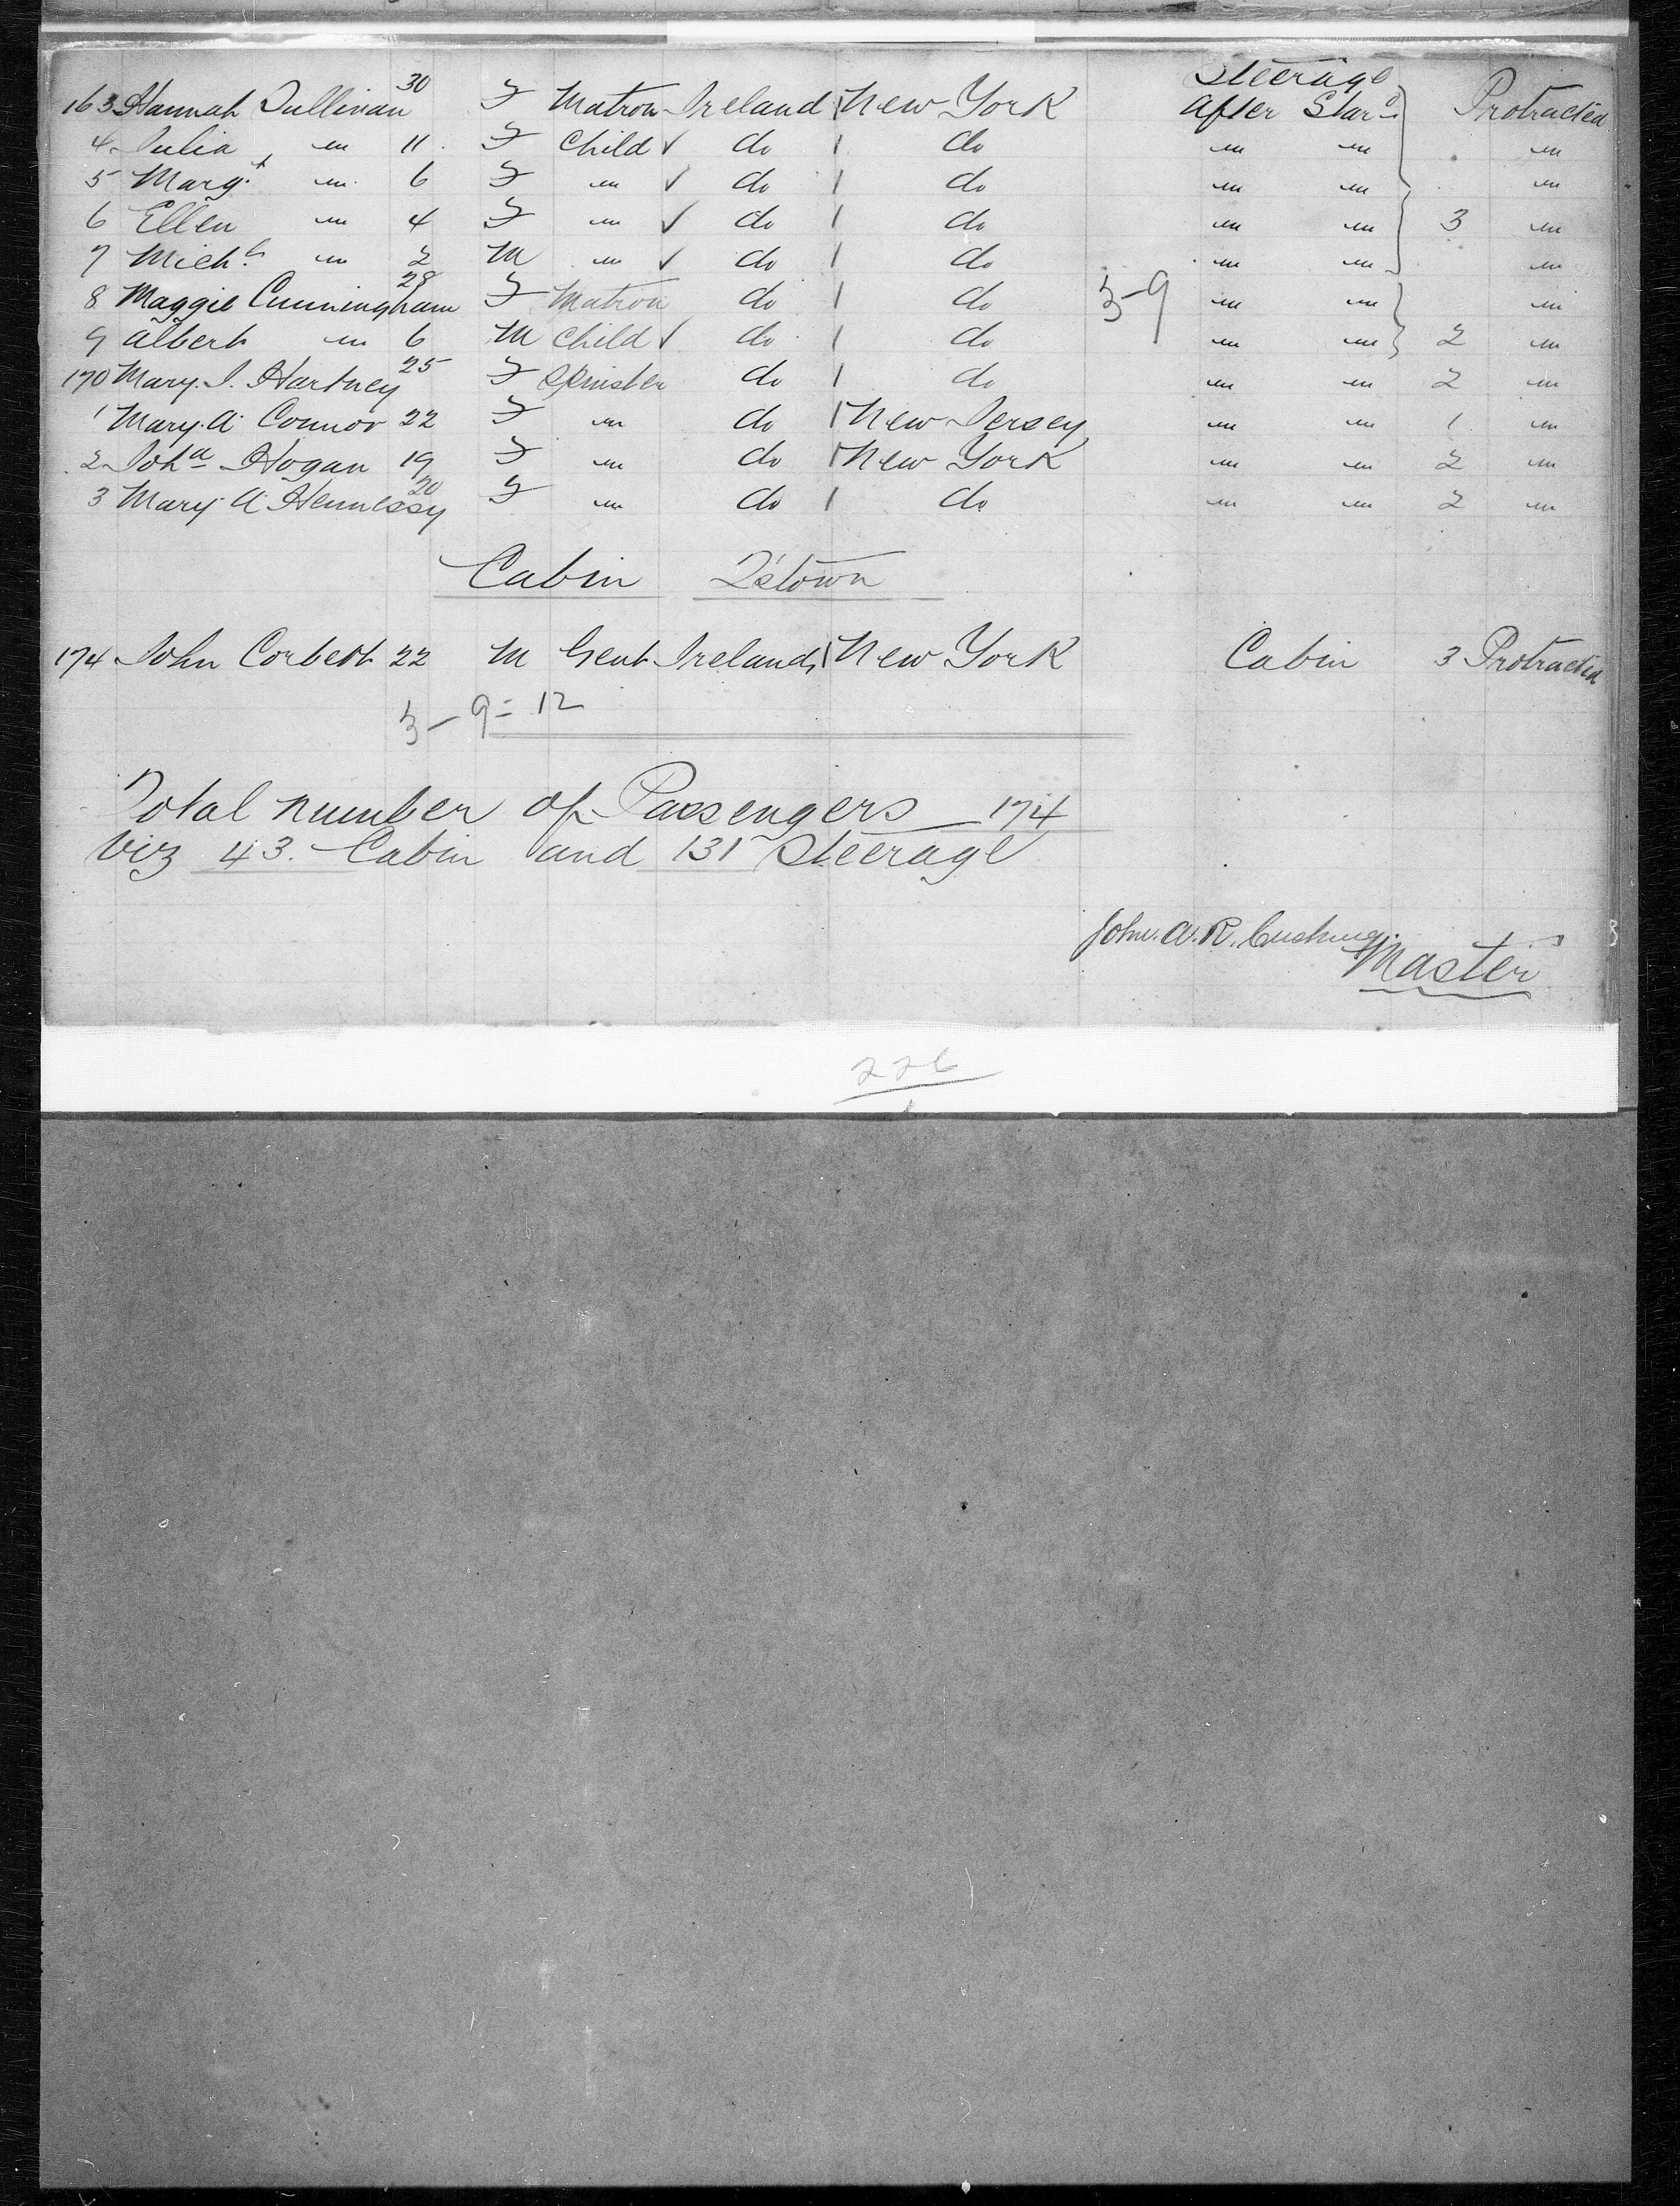 163 Hannah Sullivan 30 F Matron Ireland New York Steerage After Star^d Protracted
4 Julia " 11 F Child ✓ do do " " "
5 Marg^t " 6 F " ✓ do do " " "
6 Ellen " 4 F " ✓ do do " " 3 "
7 Mich^l " 2 M " ✓ do do " " "
8 Maggie Cunningham 28 F Matron do do 3-9 " " "
9 Albert " 6 M Child ✓ do do " " 2 "
170 Mary J. Hartney 25 F Spinster do do " " 2 "
1 Mary A Connor 22 F " do New Jersey " " 1 "
2 Joh^a Hogan 19 F " do New York " " 2 "
3 Mary A Hennessy 20 F " do do " " 2 "
Cabin Q'stown
174 John Corbett 22 M Gent Ireland New York Cabin 3 Protracted
3-9=12
Total number of Passengers 174
Viz 43. Cabin and 131 Steerage
John. A. R. Cushing.
Master
226